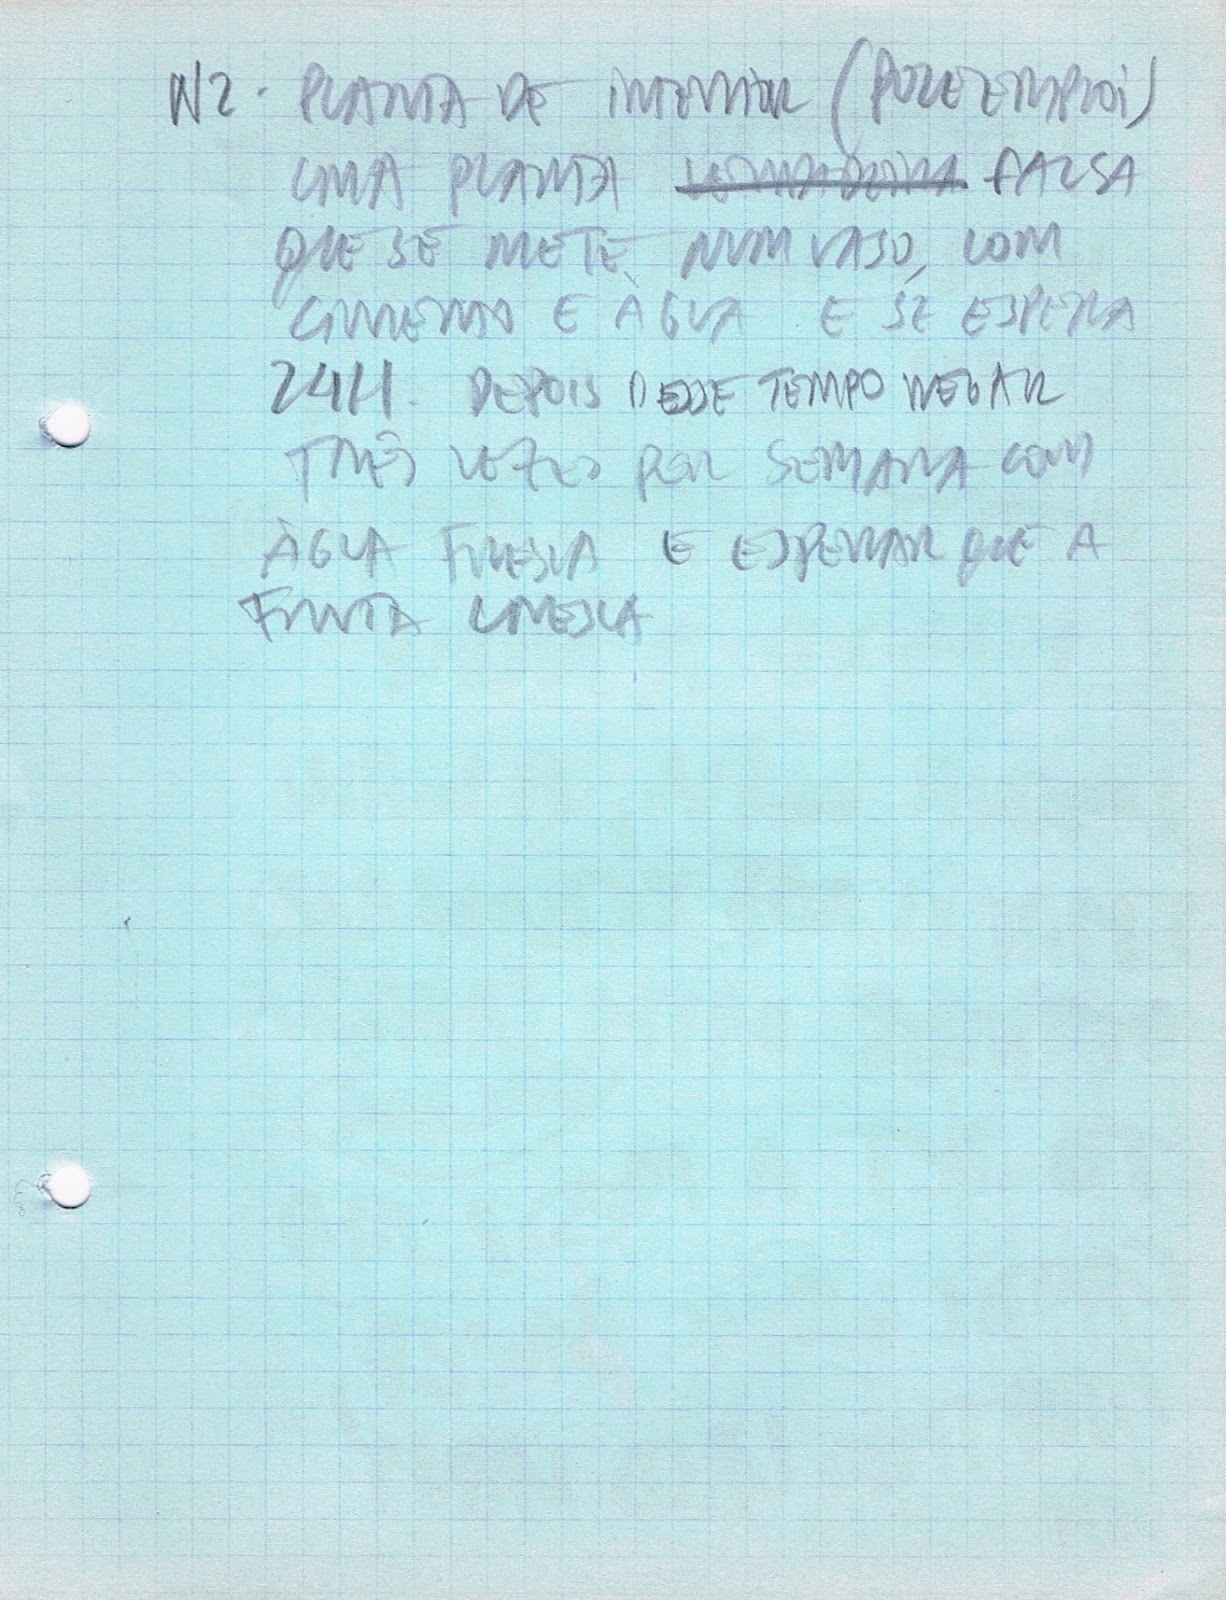 N2. PLANTA DE INTERIOR (POR EXEMPLO)
UMA PLANTA FALSA
QUE SE METE NUM VASO, COM
CIMENTO E ÀGUA E SE ESPERA
24H. DEPOIS DESSE TEMPO REGAR
TRÊS VEZES POR SEMANA COM
ÀGUA FRESCA E ESPERAR QUE A
FRUTA CRESCA